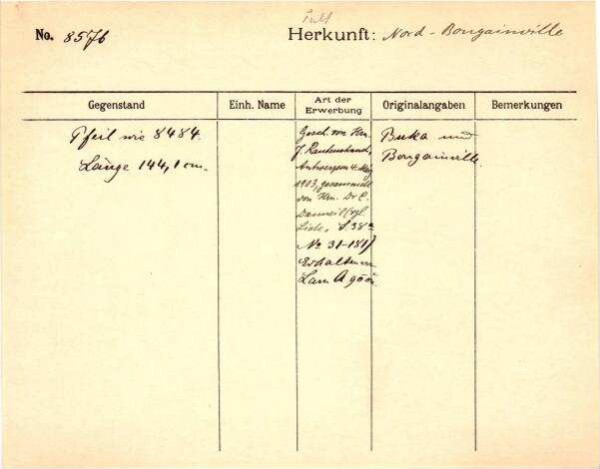 No. 8576
Herkunft: Nord-Bougainville
Gegenstand
Einh. Name
Art der Erwerbung
Originalangaben
Bemerkungen
Pfeil wie 8484.
Länge 144,1 cm.
Gesch. von Hrn.
J.
Antwerpen 4. Mai
1913, gesammelt
von Hrn. Dr. E.
(vgl.
Liste, S. 38
No 31-181)
Erhalten
Buka und
Bougainville.